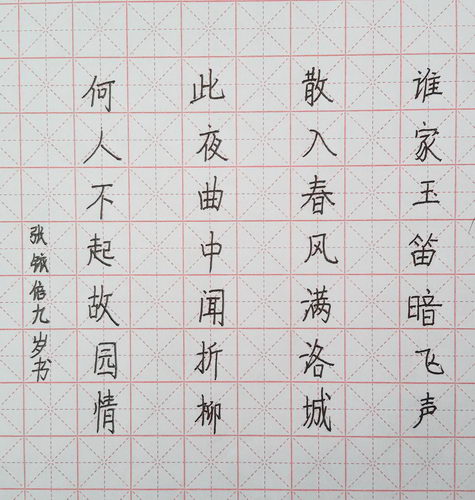 谁家玉笛暗飞声
散入春风满洛城
此夜曲中闻折柳
何人不起故园情
张铱倍九岁书